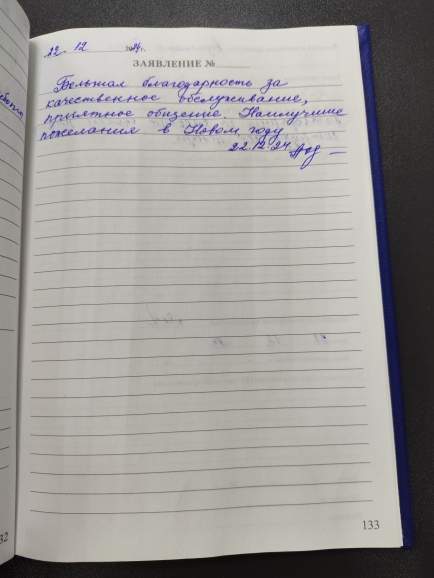 22. 12 2024г.
ЗАЯВЛЕНИЕ №
Большая благодарность за
качественное обслуживание,
приятное общение. Наилучшие
пожелания в Новом году
22.12.24
133
32